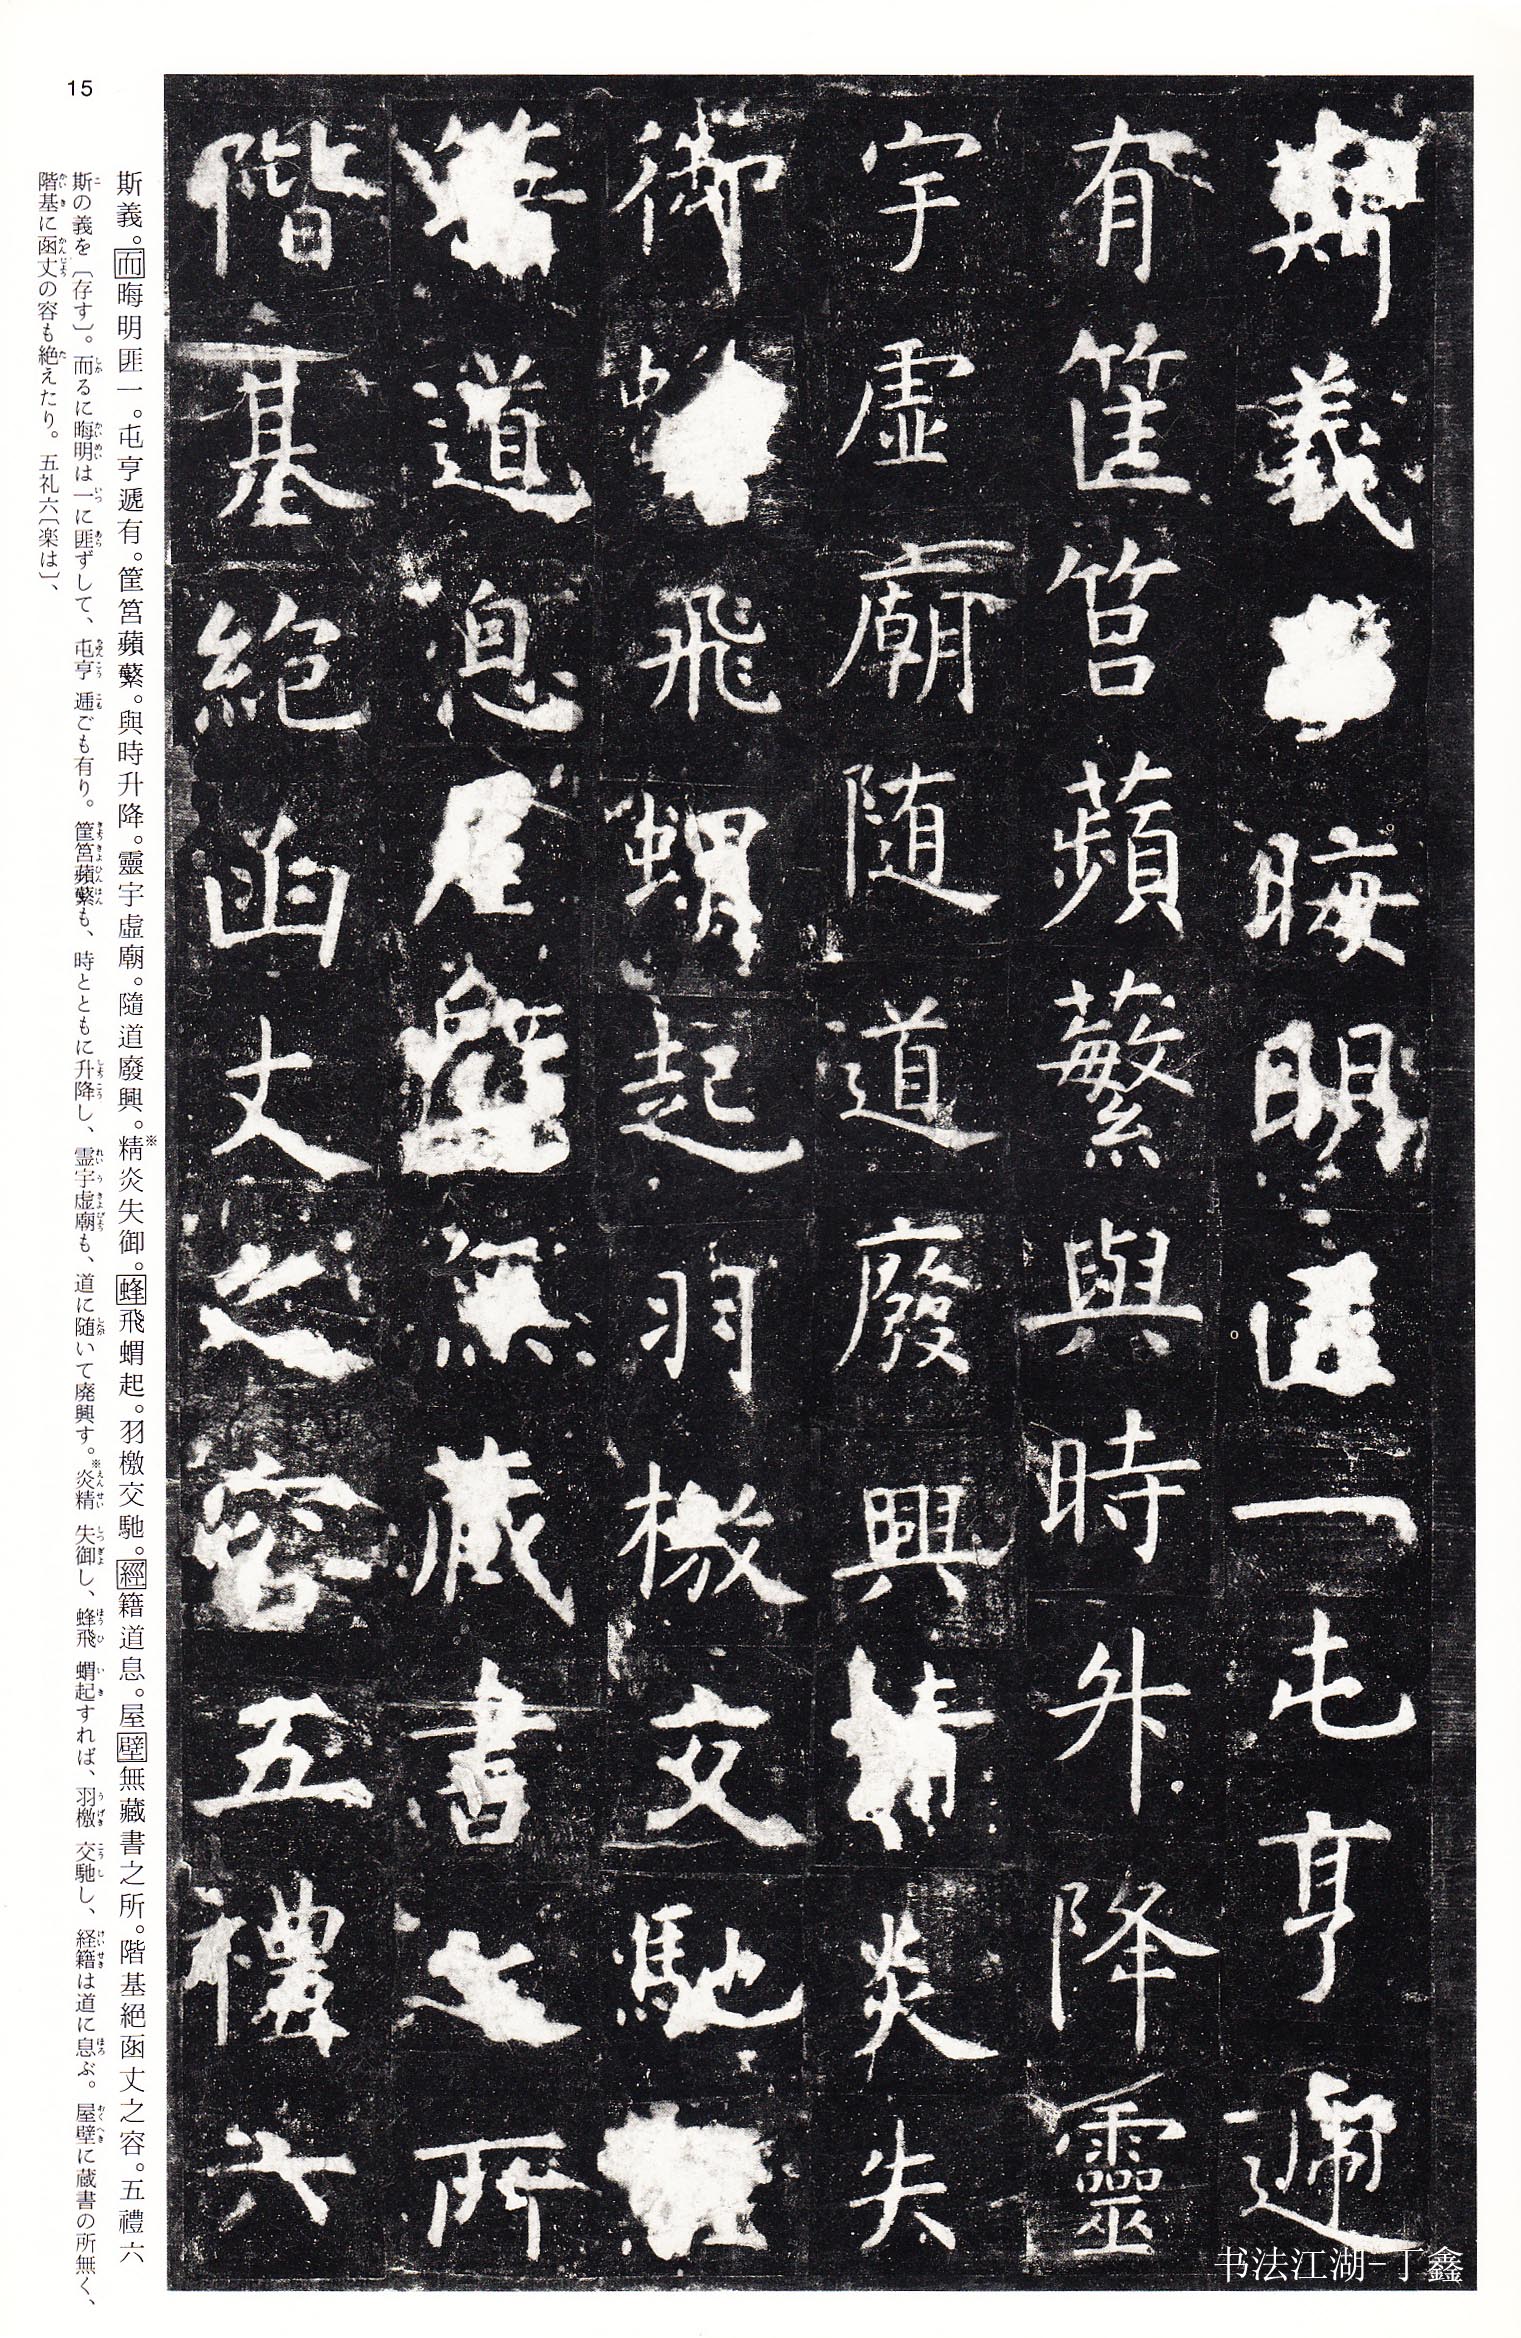 斯義晦明匪一屯亨遞
有筐筥蘋蘩與時升降靈
宇虛廟随道廢興精炎失
御飛蝟起羽檄交馳
籍道息屋壁無藏書之所
階基絕函丈之容五禮六
斯義。而晦明匪一。屯亨遞有。筐筥蘋蘩。與時升降。靈宇虛廟。隨道廢興。※精炎失御。蜂飛蝟起。羽檄交馳。經籍道息。屋壁無藏書之所。階基絕函丈之容。五禮六
斯の義を〔存す〕。而るに晦明は一に匪ずして、屯亨遞ごも有り。筐筥蘋蘩も、時とともに升降し、霊宇虚廟も、道に随いて廃興す。※炎精失御し、蜂飛蝟起すれば、羽檄交馳し、経籍は道に息ぶ。屋壁に蔵書の所無く、
階基に函丈の容も絶えたり。五礼六〔楽は〕、
15
书法江湖-丁鑫